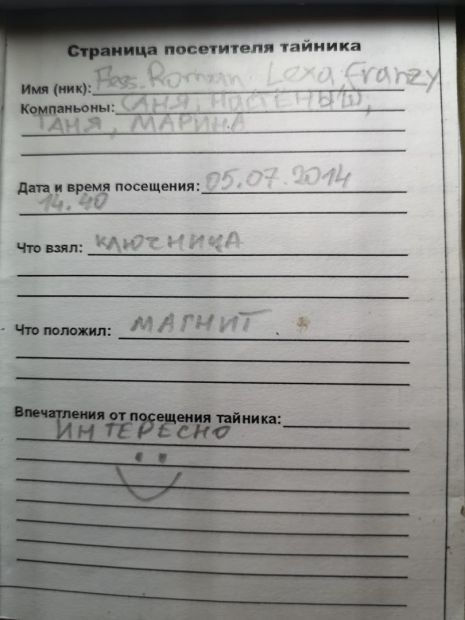 Страница посетителя тайника
Имя (ник): Fess. Roman Lexa Franzy
Компаньоны: САНЯ, НАСТЁНЫШ,
ТАНЯ, МАРИНА
Дата и время посещения: 05.07.2014
14.40
Что взял: КЛЮЧНИЦА
Что положил: МАГНИТ
Впечатления от посещения тайника:
ИНТЕРЕСНО